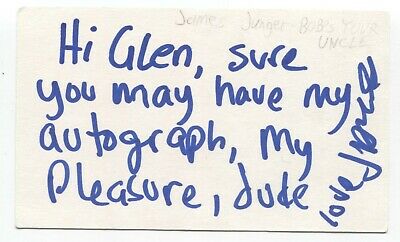 James Junger - BOB'S YOUR
UNCLE
Hi Glen, sure
you may have my
autograph, My
Pleasure, dude
love James